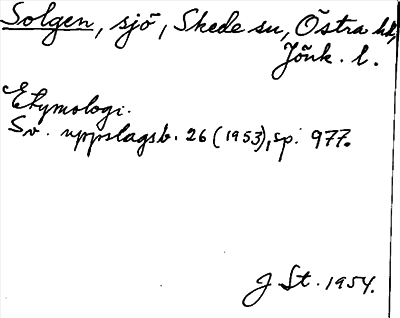 Solgen, sjö, Skede sn, Östra hd,
Jönk. l.
Etymologi.
Sv. uppslagsb. 26 (1953), sp. 977.
J St. 1954.